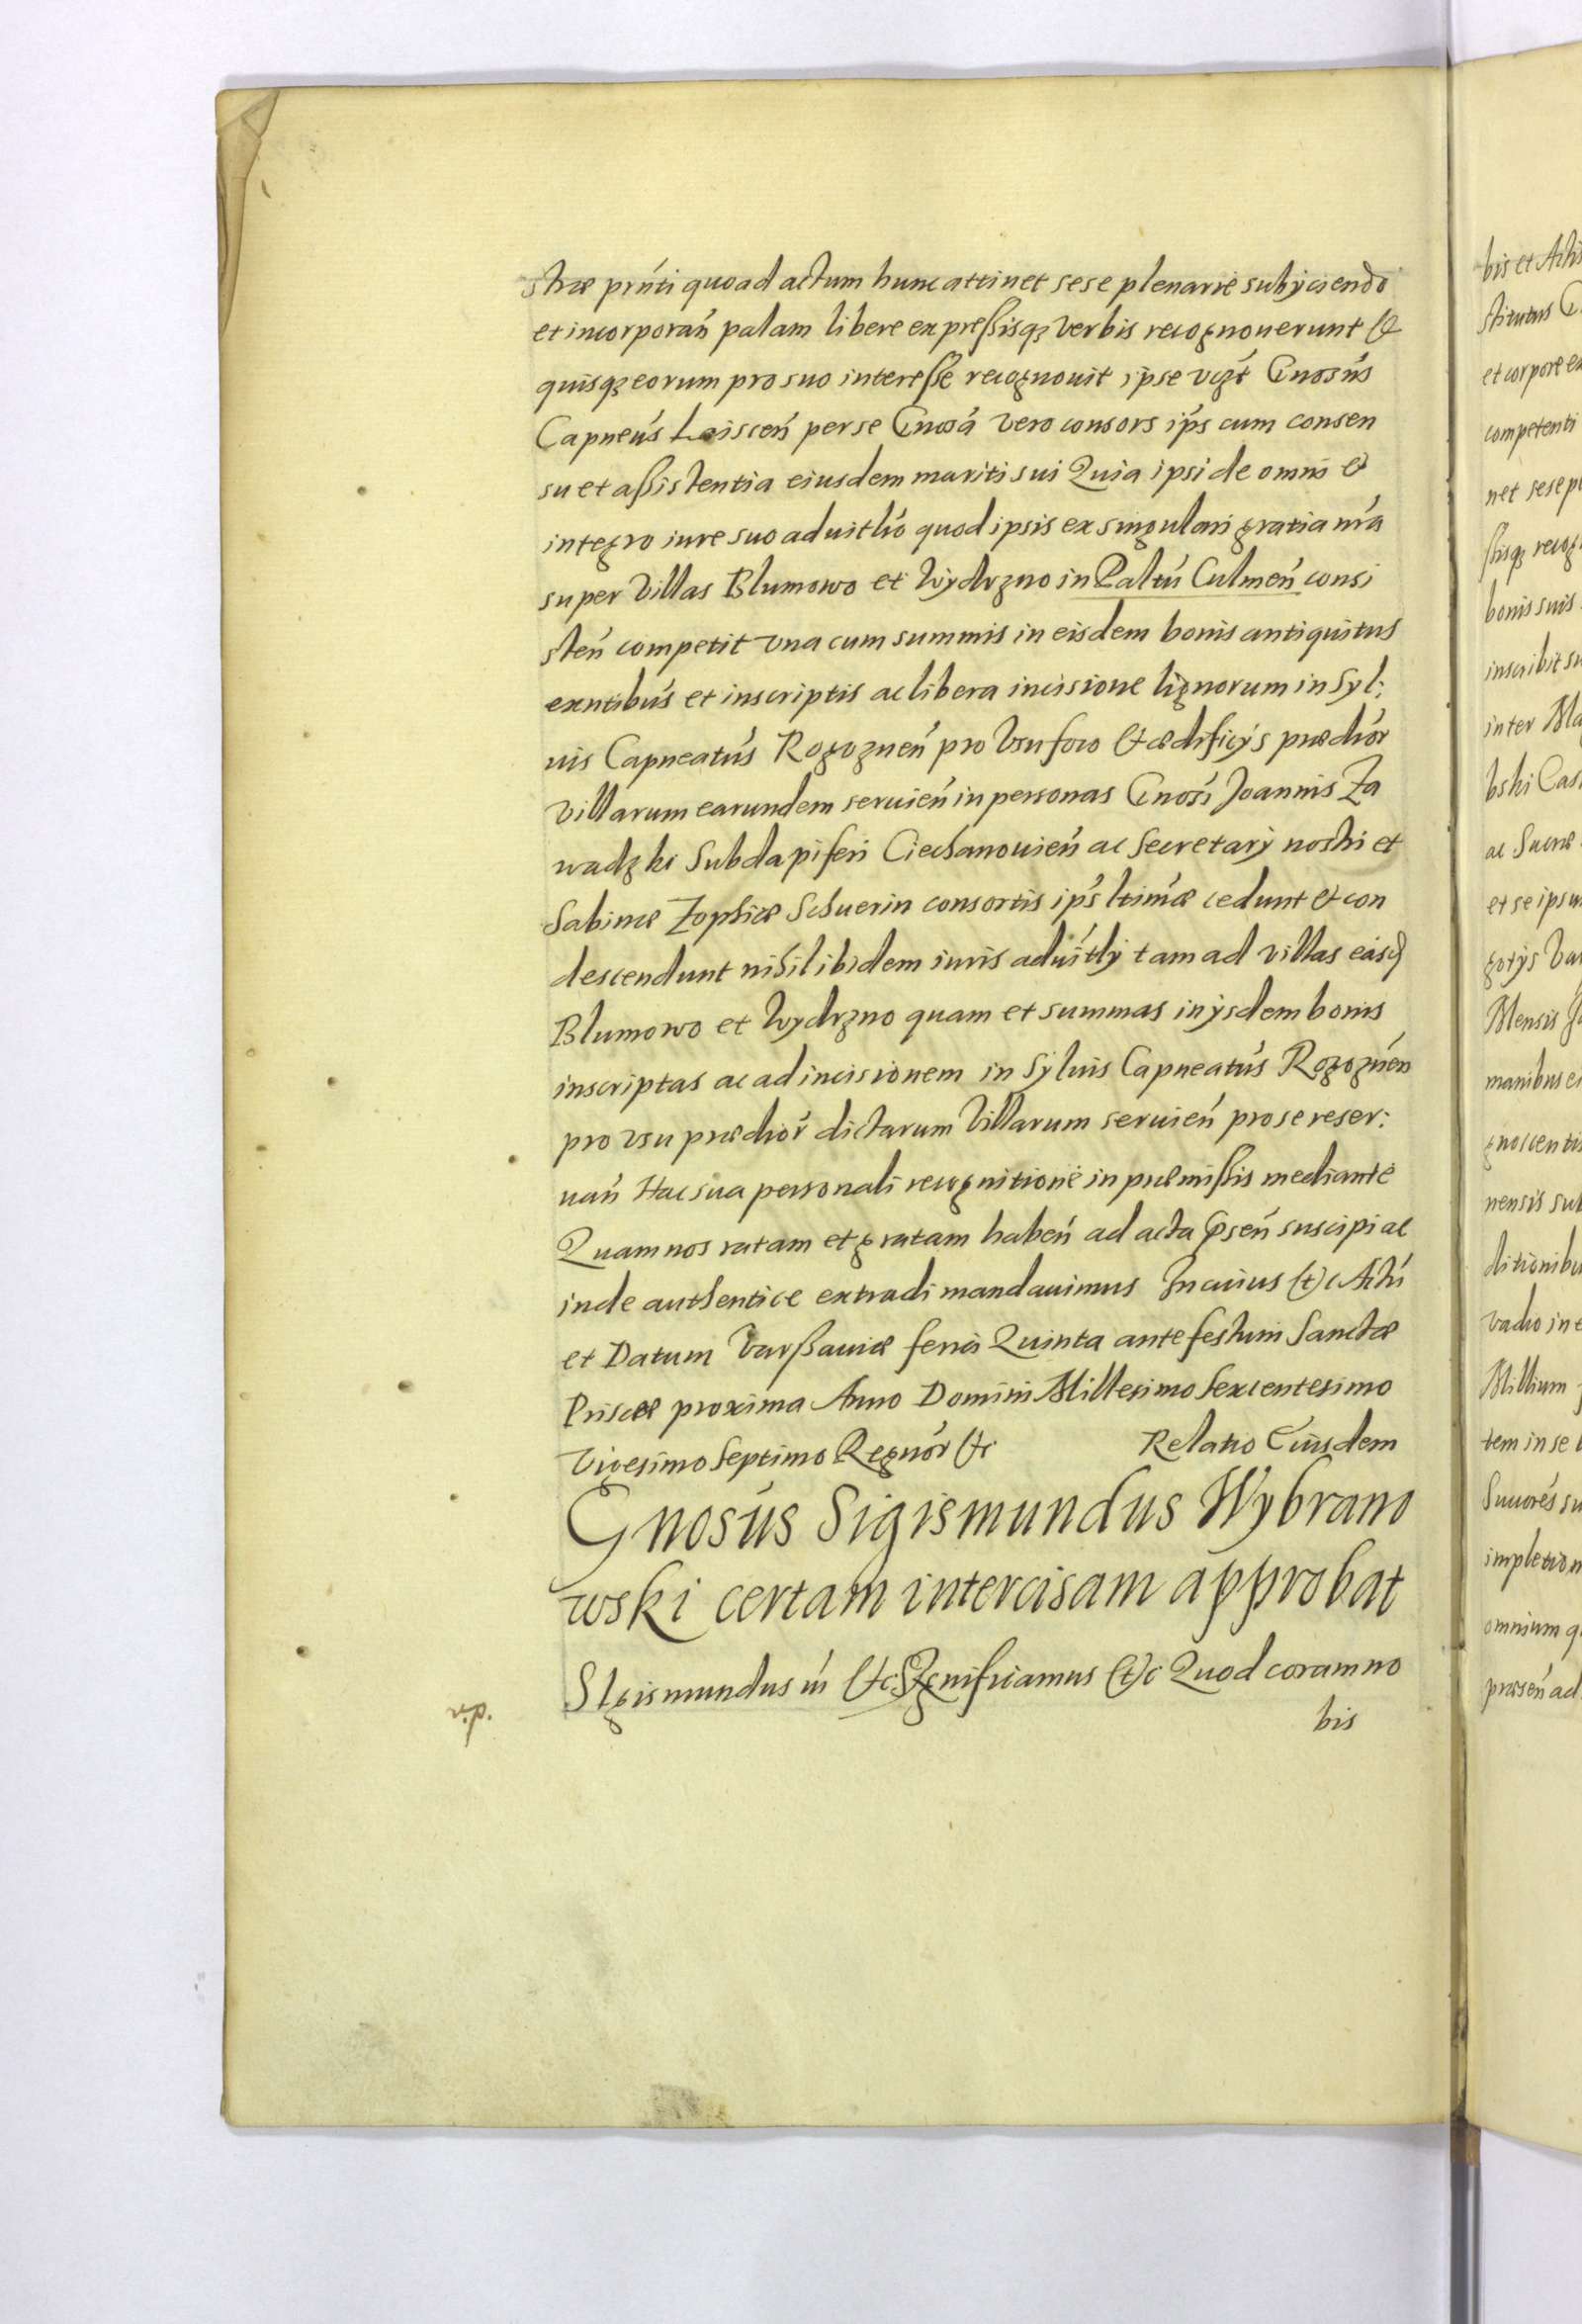 stræ prńti quoad actum hunc attinet sese plenarie subÿciendo
et incorporań palam libere expreßisqȝ verbis recognouerunt &
quisqȝ eorum pro suo interesse recognouit ipse vczt́ Gnosús
Capneús Loisceń per se Gnosá vero consors ip̃s cum consen
su et aßistentia eiusdem mariti sui Quia ipsi de omni &
integro iure suo aduitĺio quod ipsis ex singulari gratia nr̃a
super Villas Blumowo et Wydrzno in Paltú Culmeń consi
steń competit vna cum summis in eisdem bonis antiquitus
exntibús et inscriptis ac libera incisione lignorum in Syl:
uis Capneatús Rogozneń pro Vsu foco & ædificÿs prædiór
Villarum earundem seruień in personas Gnosí Joannis Za
wadzki Subdapiferi Ciechanouień ac Secretarÿ nostri et
Sabinæ Zophiæ Schuerin consortis ip̃s ltimæ cedunt & con
descendunt nihil ibidem iuris aduitly tam ad villas easd
Blumowo et Wydrzno quam et summas in ÿsdem bonis
inscriptas ac ad incisionem in Syluis Capneatús Rogoznén
pro vsu prædiór dictarum Villarum seruień pro se reser:
uań Hac sua personali recognitione in præmißis mediante
Quam nos ratam et gratam habeń ad acta p̃seń suscipi ac
inde authentice extradi mandauimus In cuius (t)c Actú
et Datum Varßauiæ feria Quinta ante festum Sanctæ
Priscæ proxima Anno Domini Millesimo Sexcentesimo
Vigesimo Septimo Regnór &c Relatio Eiusdem
Gnosús Sigismundus Wybrano
wski certam intercisam approbat
SIgismundus iií &c Significamus (t)c Quod coram no
bis
bis et Actis
stitutus G
et corpore
competenti
net sese pl
ßisqȝ recog
bonis suis
inscribit su
inter Ma
bski Cas
ac Sacræ
et se ipsu
gotÿs Var
Mensis Ja
manibus ei
gnoscentis
nensis sub
ditionibu
vadio int
Millium
tem in se
Suuorés su
impletion
omnium q
præseń ad